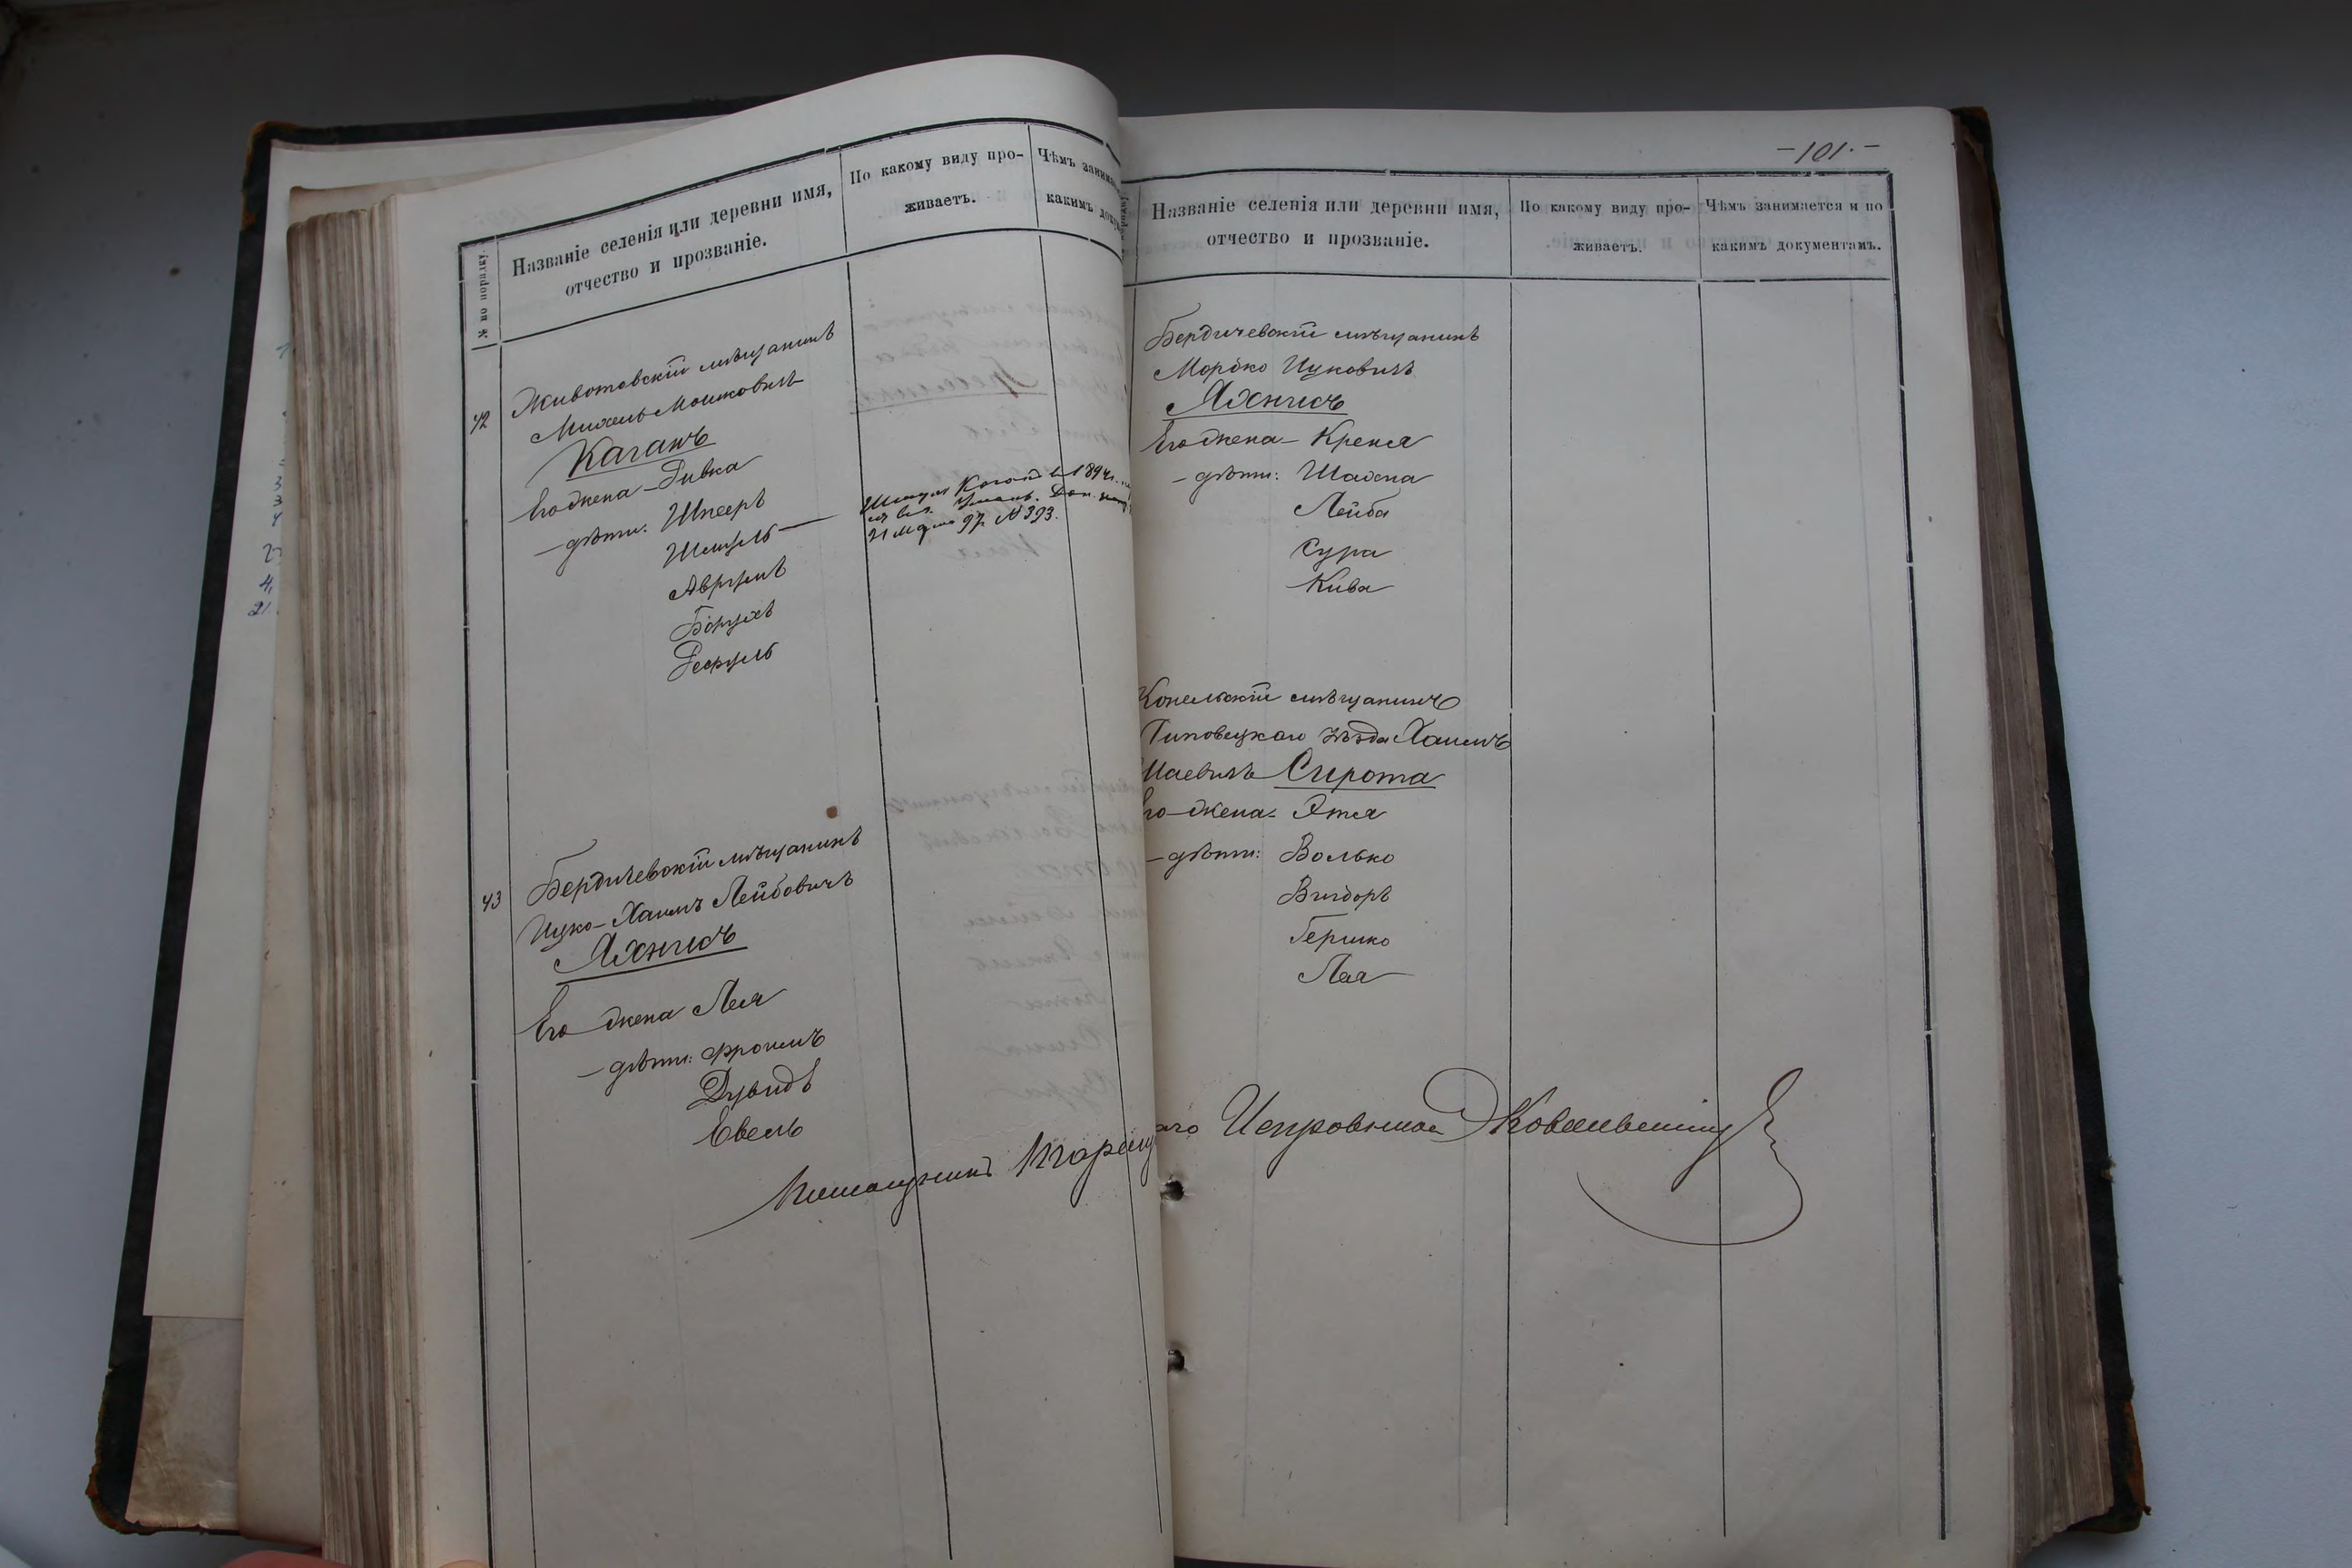 № по порядк.
Названіе селенія или деревни имя,
отчество и прозваніе.
По какому виду про-
живаетъ.
Чѣмъ заним
какимъ док
42
Животовскій мѣщанинъ
Михель Мошковичъ
Каганъ
Его жена - Ривка
- дѣти: Шнееръ
Шмуль
Аврумъ
Борухъ
Рефуль
Шмуль Коганъ 1894г.
Умань.
21 М 97 № 393.
43
Бердичевскій мѣщанинъ
Ицко-Хаимъ Лейбовичъ
Яхнисъ
Его жена Лея
- дѣти: Фроимъ
Дувидъ
Евель
Помощникъ Таращ
-101.-
Названіе селенія или деревни имя,
отчество и прозваніе.
По какому виду про-
живаетъ.
Чѣмъ занимается и по
какимъ документамъ.
Бердичевскій мѣщанинъ
Мордко Ицковичъ
Яхнисъ
Его жена - Крейня
- дѣти: Шабса
Лейба
Сура
Кива
Конельскій мѣщанинъ
Липовецкаго уѣзда Хаимъ
Маевичъ Сирота
го жена - Этя
- дѣти: Волько
Вигдоръ
Гершко
Лея
аго Исправника